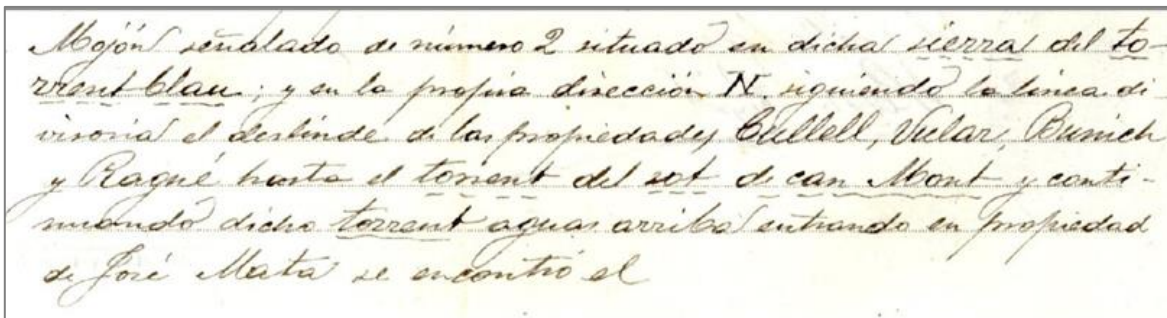 Mojón señalado de número 2 situado en dicha sierra del to-
rrent blau; y en la propia dirección N. siguiendo la linea di-
visoria el deslinde de las propiedades Cullell, Vilar, Bunich
y Ragué hasta el torrent del sot de can Mont y conti-
nuando dicho torrent aguas arriba entrando en propiedad
de José Mata se encontró el